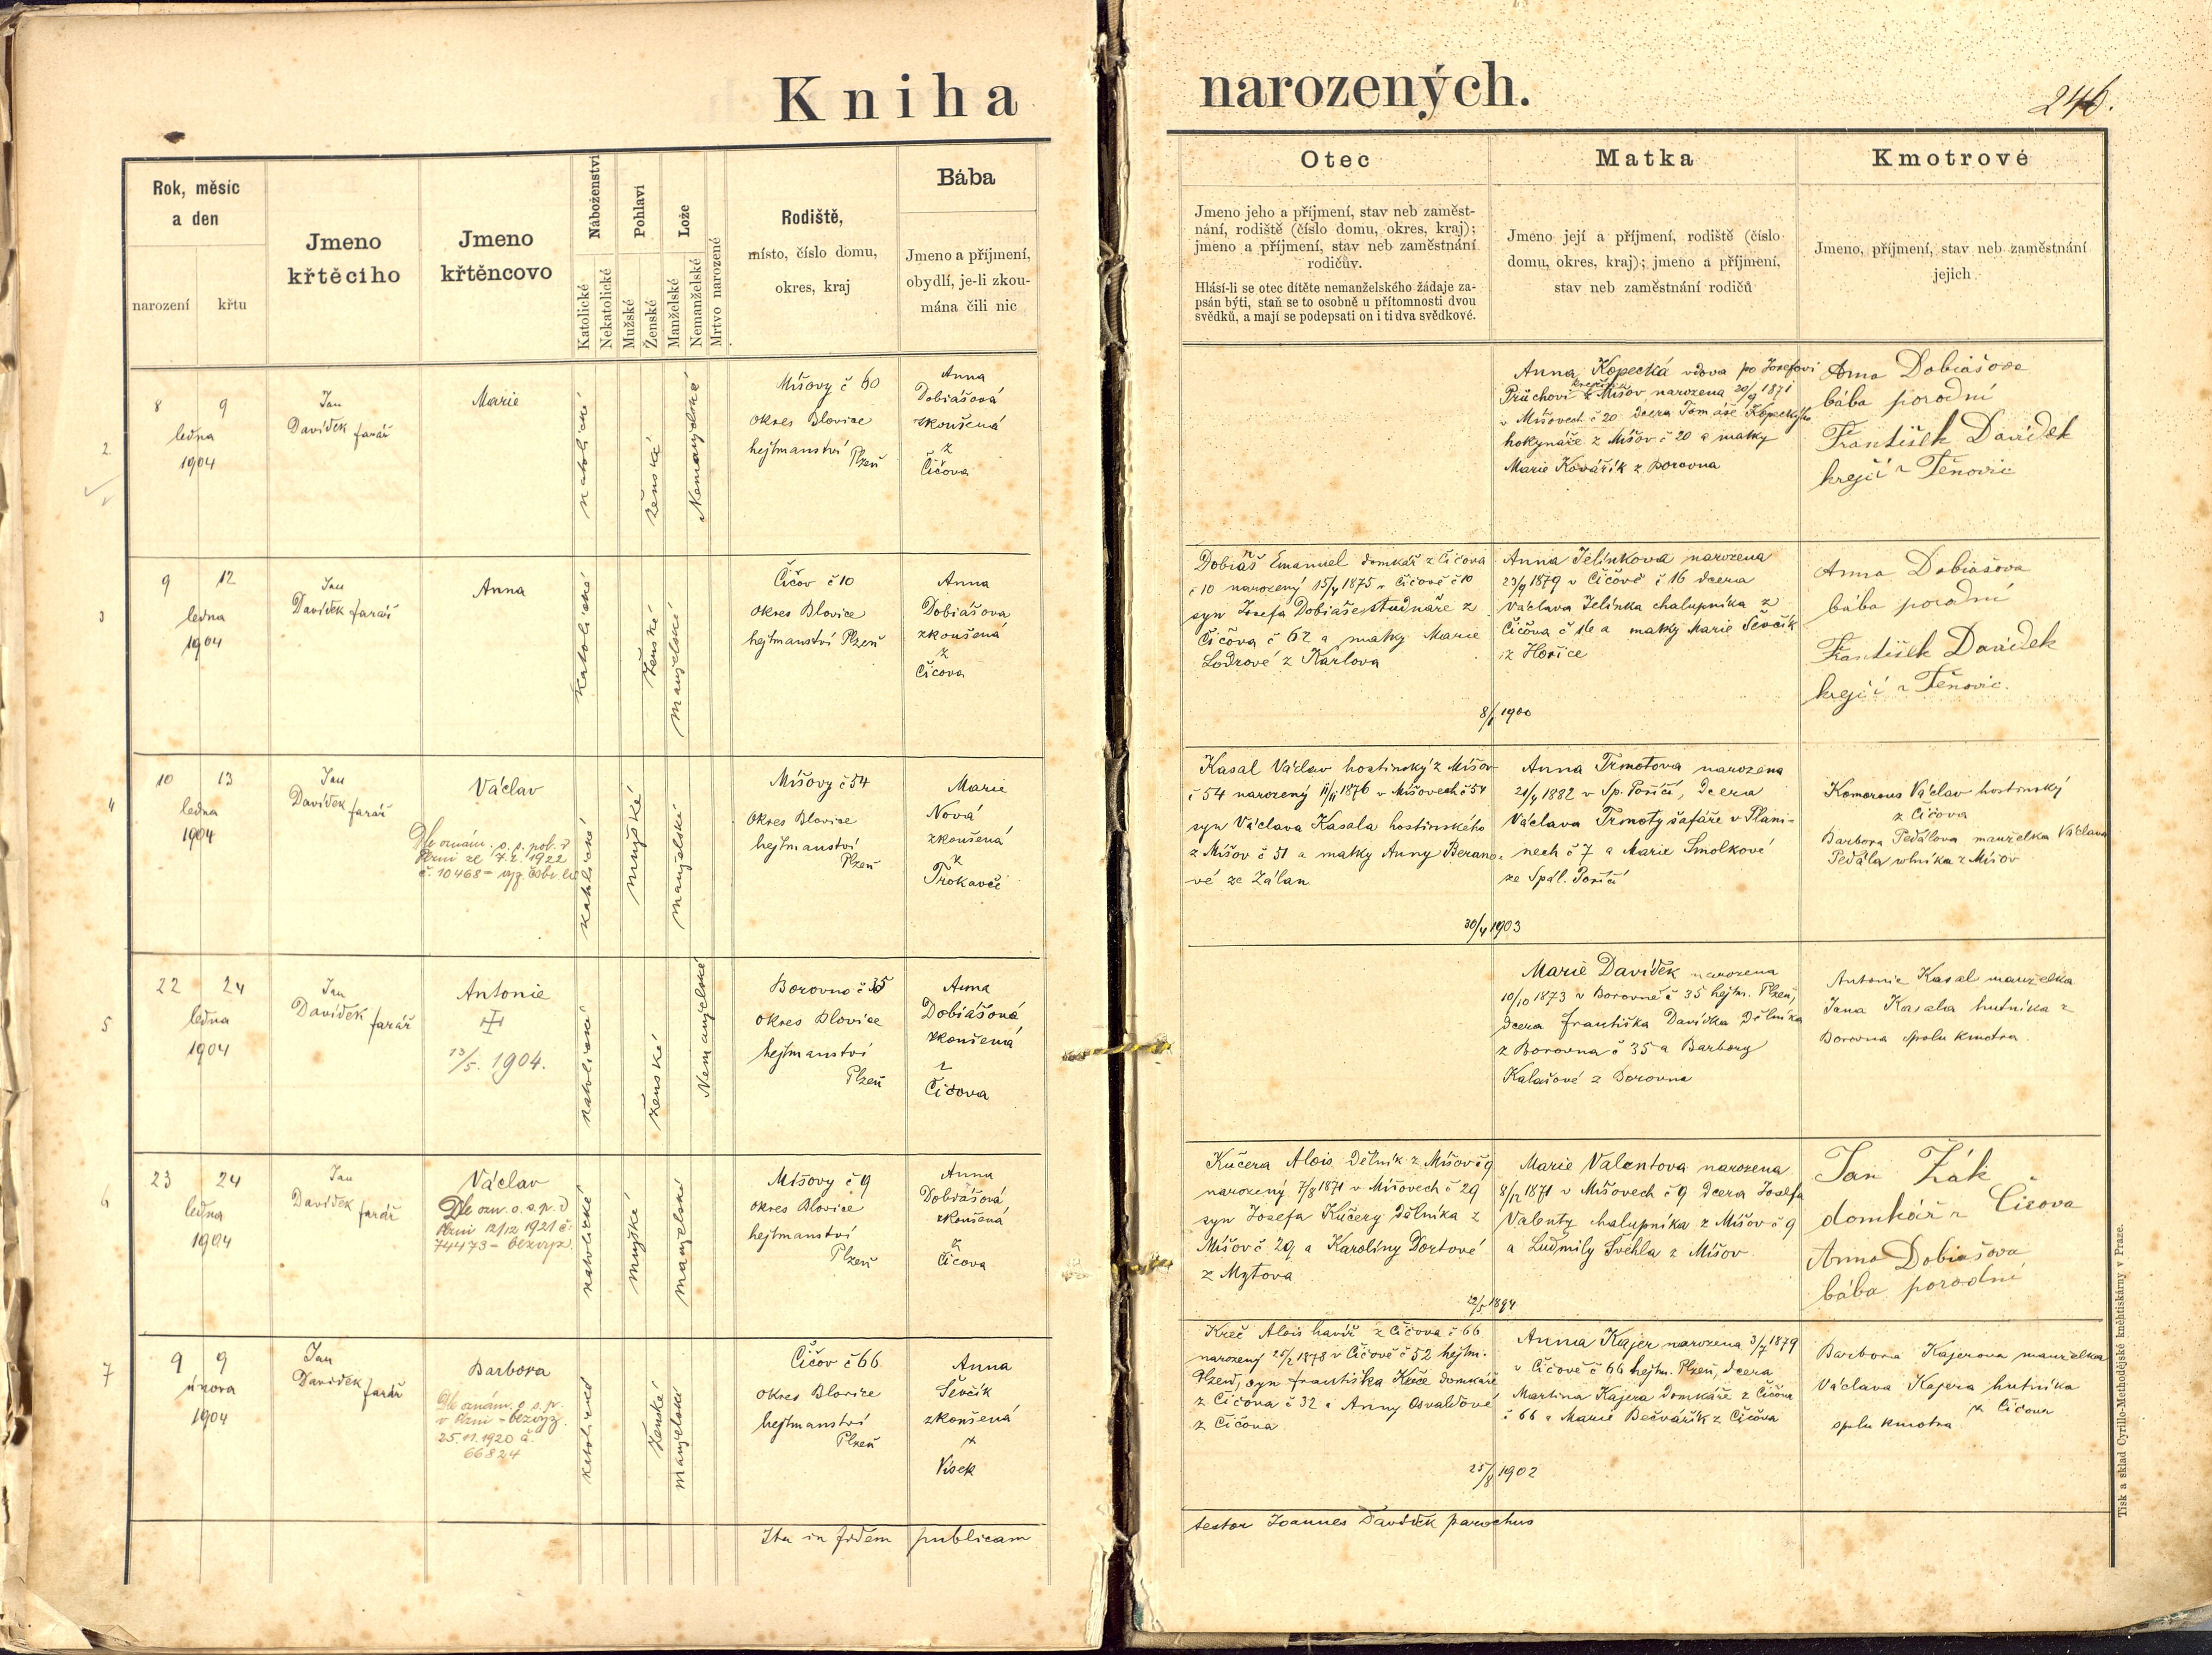 Kniha
narozených.
246.
Rok, měsíc
a den
narození
křtu
Jmeno
křtěcího
Jmeno
křtěncovo
Náboženství
Katolické
Nekatolické
Pohlaví
Mužské
Ženské
Lože
Manželské
Nemanželské
Mrtvo narozené
Rodiště,
místo, číslo domu,
okres, kraj
Bába
Jmeno a příjmení,
obydlí, je-li zkou-
mána čili nic
Otec
Jmeno jeho a příjmení, stav neb zaměst-
nání, rodiště (číslo domu, okres, kraj);
jmeno a příjmení, stav neb zaměstnání
rodičův.
Hlásí-li se otec dítěte nemanželského žádaje za-
psán býti, staň se to osobně u přítomnosti dvou
svědků, a mají se podepsati on i ti dva svědkové.
Matka
Jmeno její a příjmení, rodiště (číslo
domu, okres, kraj); jmeno a příjmení,
stav neb zaměstnání rodičů
Kmotrové
Jmeno, příjmení, stav neb zaměstnání
jejich
2
8 9
ledna
1904
Jan
Davídek farář
Marie
katolické
ženské
Nemanželské
Míšovy č 60
okres Blovice
hejtmanství
Plzeň
Anna
Dobiášová
zkoušená
z
Číčova
Anna Kopecká vdova po Josefovi
Průchovi z Míšov narozena 20/9 1871
v Míšovech č 20 dcera Tomáše Kopeckýho
hokynáře z Míšov č 20 a matky
Marie Kovářík z Borovna
Anna Dobiášova
bába porodní
František Davídek
krejčí z Těnovic
3
9 12
ledna
1904
Jan
Davídek farář
Anna
katolické
ženské
manželské
Číčov č 10
okres Blovice
hejtmanství Plzeň
Anna
Dobiášova
zkoušená
z
Číčova
Dobiáš Emanuel domkář z Číčova
č 10 narozený 15/4 1875 v Číčově č 10
syn Josefa Dobiáše studnáře z
Číčova č 62 a matky Marie
Lodrové z Karlova
Anna Jelínkova narozena
23/9 1879 v Číčově č 16 dcera
Václava Jelínka chalupníka z
Číčova č 16 a matky Marie Ševčík
z Hořice
Anna Dobiášova
bába porodní
František Davídek
krejčí z Těnovic.
8/1 1900
4
10 13
ledna
1904
Jan
Davídek farář
Václav
Dle oznám. o. s. pol. v
Plzni ze 7.2. 1922
č. 10468 - vyz.
katolické
mužské
manželské
Míšovy č 54
okres Blovice
hejtmanství
Plzeň
Marie
Nová
zkoušená
z
Trokavče
Kasal Václav hostinský z Míšov
č 54 narozený 11/11 1876 v Míšovech č 54
syn Václava Kasala hostinského
z Míšov č 51 a matky Anny Berano-
vé ze Zálan
Anna Trmotova narozena
21/4 1882 v Sp. Poříčí, dcera
Václava Trmoty šafáře v Pláni-
nech č 7 a Marie Smolkové
ze Spál. Poříčí
Komorous Václav hostinský
z Číčova
Barbora Peďálova manželka Václava
Peďála rolníka z Míšov
30/4 1903
5
22 24
ledna
1904
Jan
Davídek farář
Antonie
13/5. 1904.
katolické
ženské
Nemanželské
Borovno č 35
okres Blovice
hejtmanství
Plzeň
Anna
Dobiášová
zkoušená
z
Číčova
Marie Davídek narozena
10/10 1873 v Borovně č 35 hejtm. Plzeň,
dcera Františka Davídka dělníka
z Borovna č 35 a Barbory
Kalašové z Borovna
Antonie Kasal manželka
Jana Kasala hutníka z
Borovna spolu kmotra.
6
23 24
ledna
1904
Jan
Davídek farář
Václav
Dle ozn. o. s. p. v
Plzni 12/12 1921 č.
74473 - bezvyz.
katolické
mužské
manželské
Míšovy č 9
okres Blovice
hejtmanství
Plzeň
Anna
Dobiášová
zkoušená
z
Číčova
Kučera Alois dělník z Míšov č 9
narozený 7/8 1871 v Míšovech č 29
syn Josefa Kučery dělníka z
Míšov č 29 a Karolíny Dortové
z Mýtova
Marie Valentova narozena
8/12 1871 v Míšovech č 9 dcera Josefa
Valenty chalupníka z Míšov č 9
a Ludmily Švehla z Míšov
Jan Žák
domkář z Číčova
Anna Dobiášova
bába porodní
12/5 1894
7
9 9
února
1904
Jan
Davídek farář
Barbora
Dle oznám. o. s. p.
v Plzni - bezvyz.
25.11.1920 č.
66824
katolické
ženské
manželské
Číčov č 66
okres Blovice
hejtmanství
Plzeň
Anna
Ševčík
zkoušená
z
Vísek
Kreč Alois havíř z Číčova č 66
narozený 25/2 1878 v Číčově č 52 hejtm.
Plzeň, syn Františka Kreče domkáře
z Číčova č 32 a Anny Osvaldové
z Číčova
Anna Kajer narozena 3/7 1879
v Číčově č 66 hejtm. Plzeň, dcera
Martina Kajera domkáře z Číčova
č 66 a Marie Bečvářík z Číčova
Barbora Kajerova manželka
Václava Kajera hutníka
z Číčova
spolu kmotra
25/8 1902
Ita in fidem publicam
testor Joannes Davídek parochus
Tisk a sklad Cyrillo-Methodějské knihtiskárny v Praze.